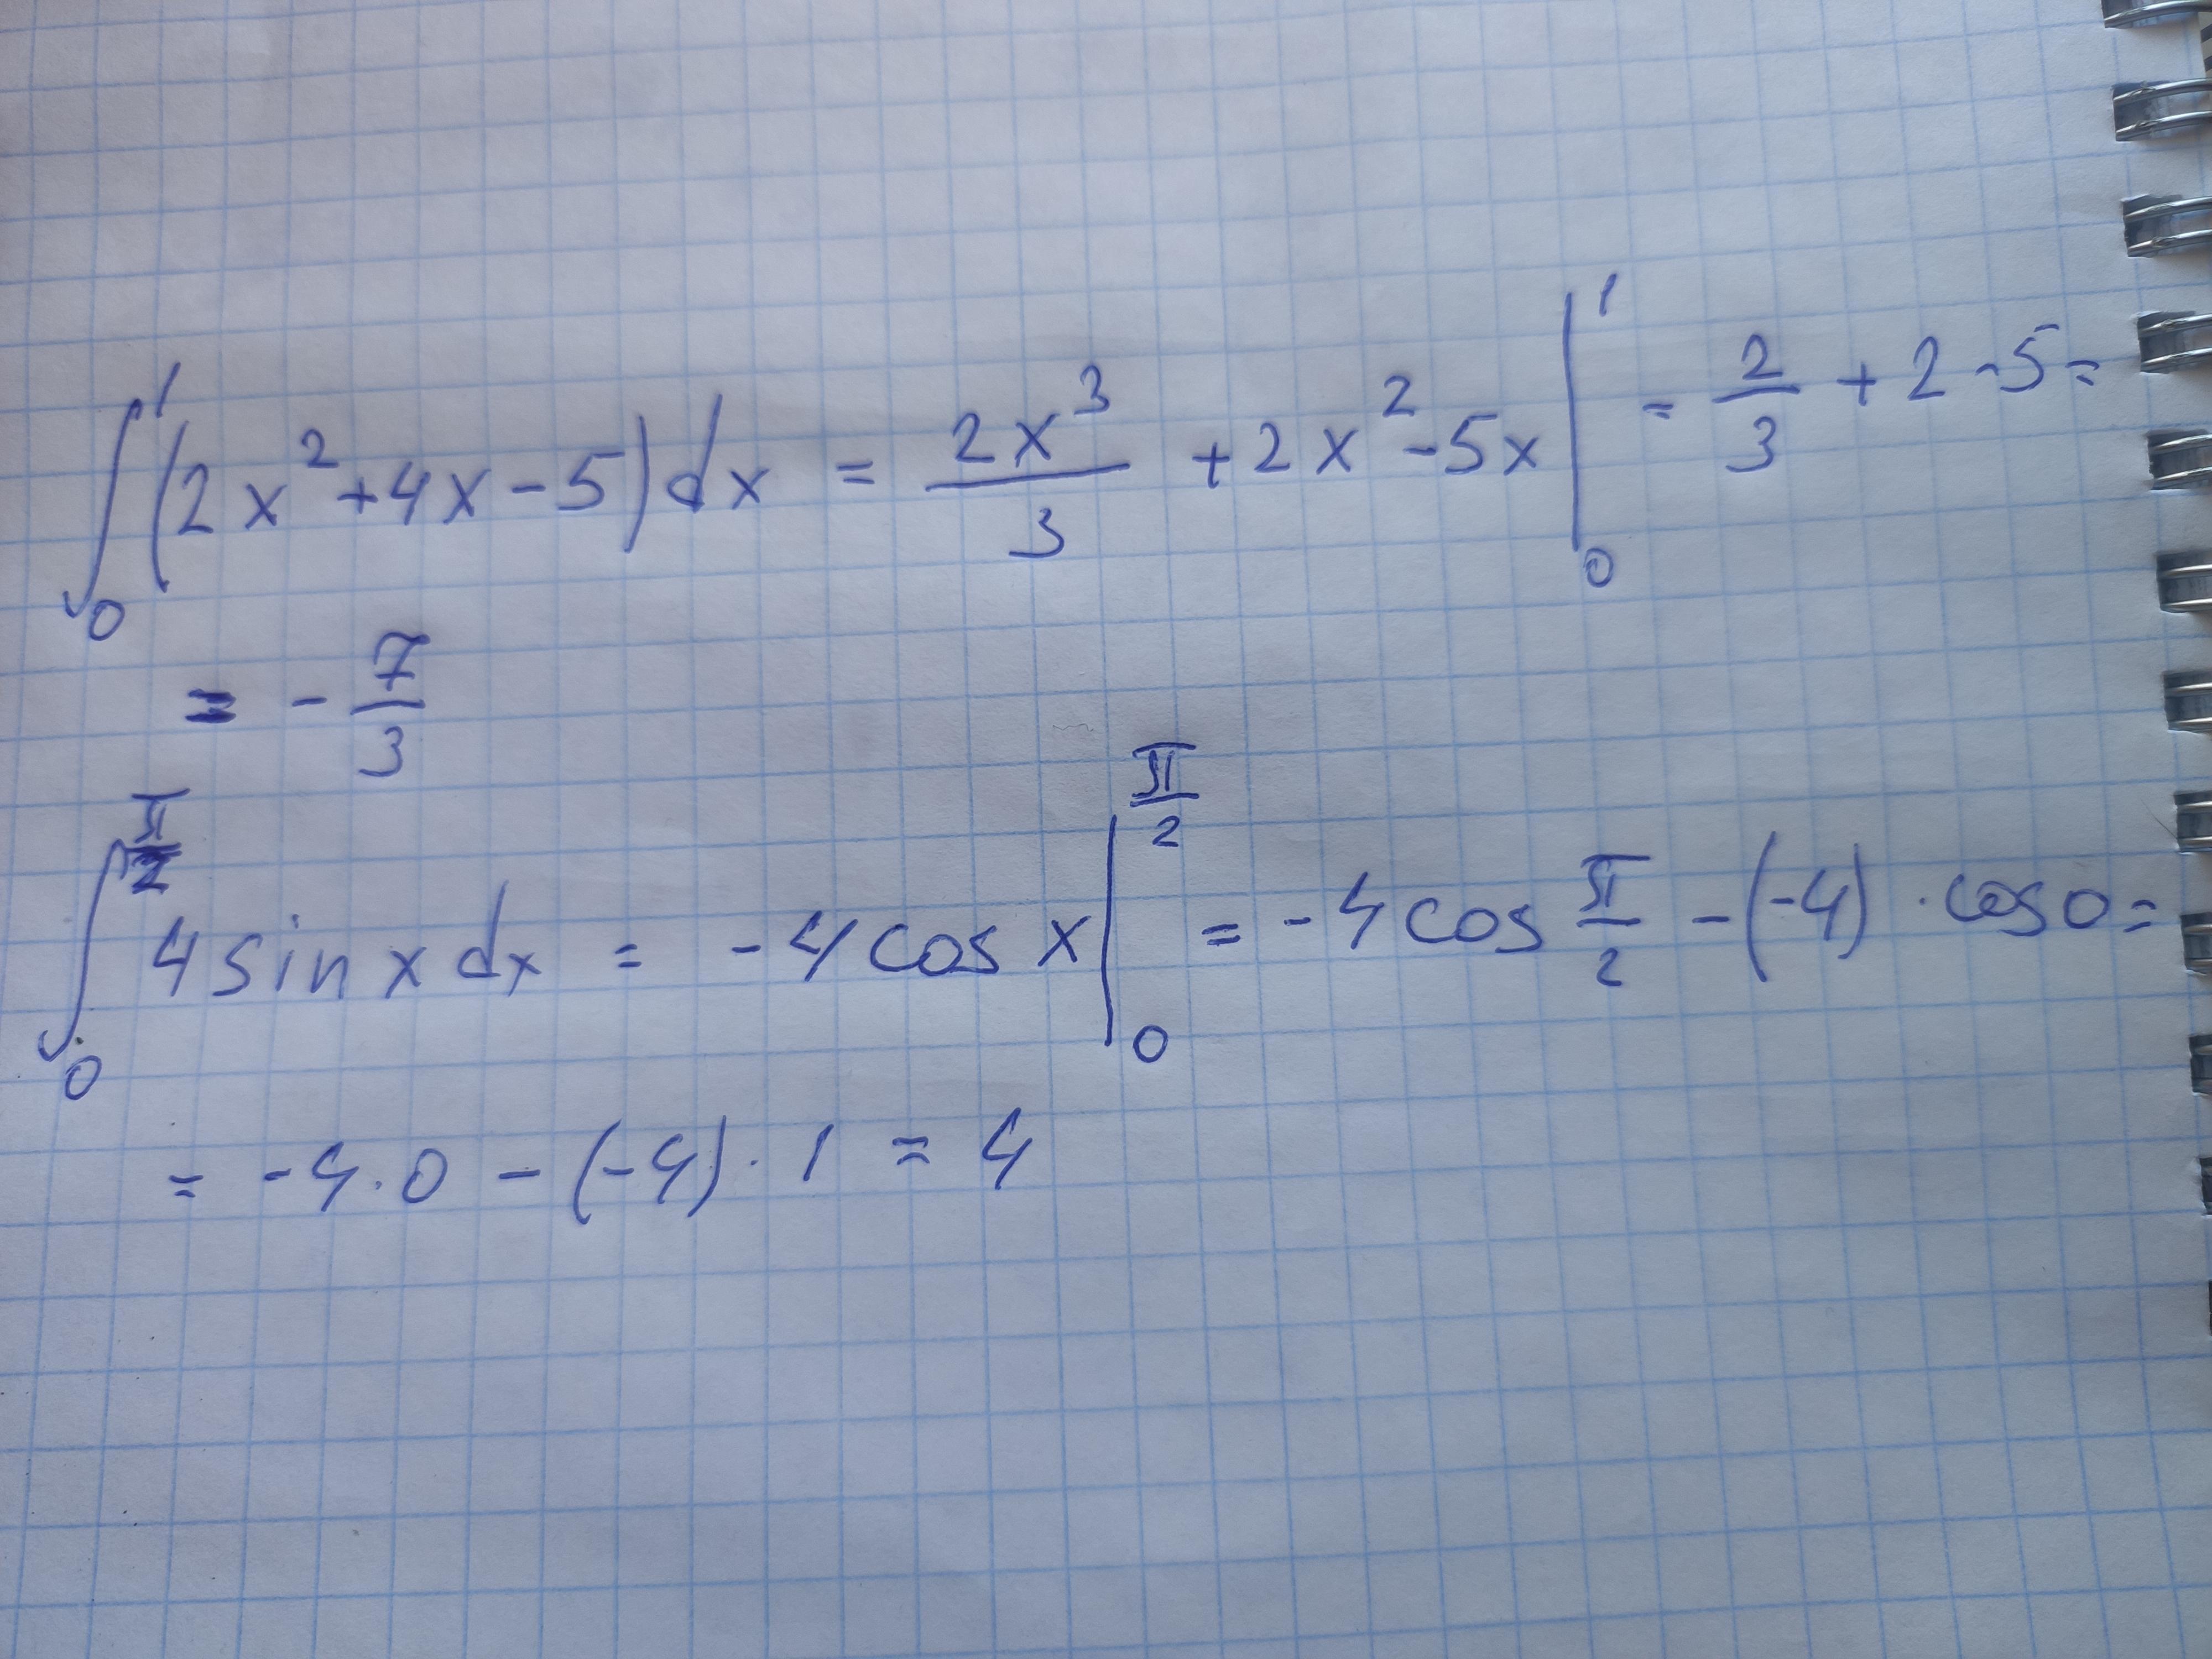 ∫₀¹ (2x² + 4x - 5) dx = 2x³/3 + 2x² - 5x |₀¹ = 2/3 + 2 - 5 =
= - 7/3
∫₀^(π/2) 4 sin x dx = -4 cos x |₀^(π/2) = -4 cos π/2 - (-4) · cos 0 =
= -4 · 0 - (-4) · 1 = 4